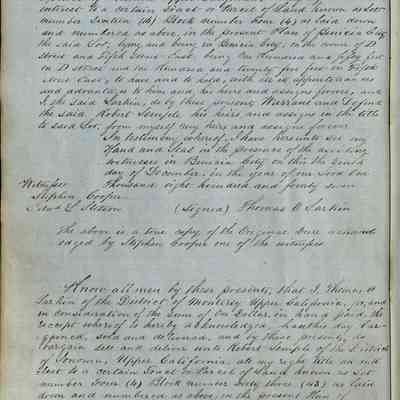 interest to a certain Tract or Parcel of Land known as Lot
number Sixteen (16) Block number Four (4) as laid down
and numbered as above, in the present Plan of Benicia City
the said Lot, lying and being in Benicia City, on the corner of D
Street and Eighth Street East, being One Hundred and fifty feet
on D Street and One Hundred and twenty five feet on Eighth
Street East, to have and to hold, with all its appurtenances
and advantages to him and his heirs and assigns forever, and
I, the said Larkin, do by these presents, Warrant and Defend
the said Robert Semple his heirs and assigns in the title
to said Lot, from myself my heirs and assigns forever
In testimony whereof, I have hereunto set my
Hand and Seal in the presence of the assisting
witnesses in Benicia City on this the tenth
day of December, in the year of our Lord One
Witnesses Thousand, eight hundred and forty seven
Stephen Cooper
L Stetson (Signed) Thomas O Larkin
The above is a true copy of the Original Deed acknowl
edged by Stephen Cooper one of the witnesses
Know all men by these presents, that I, Thomas O
Larkin of the District of Monterey Upper California, for, and
in consideration of the Sum of One Dollar, in hand paid, the
receipt whereof is hereby acknowledged, hath this day bar
gained, sold and delivered, and by these presents, do
bargain sell and deliver unto Robert Semple of the District
of Sonoma, Upper California, all my right, title and int
erest to a certain Tract or Parcel of Land known as Lot
number Four (4) Block number Sixty three (63) as laid
down and numbered as above, in the present Plan of